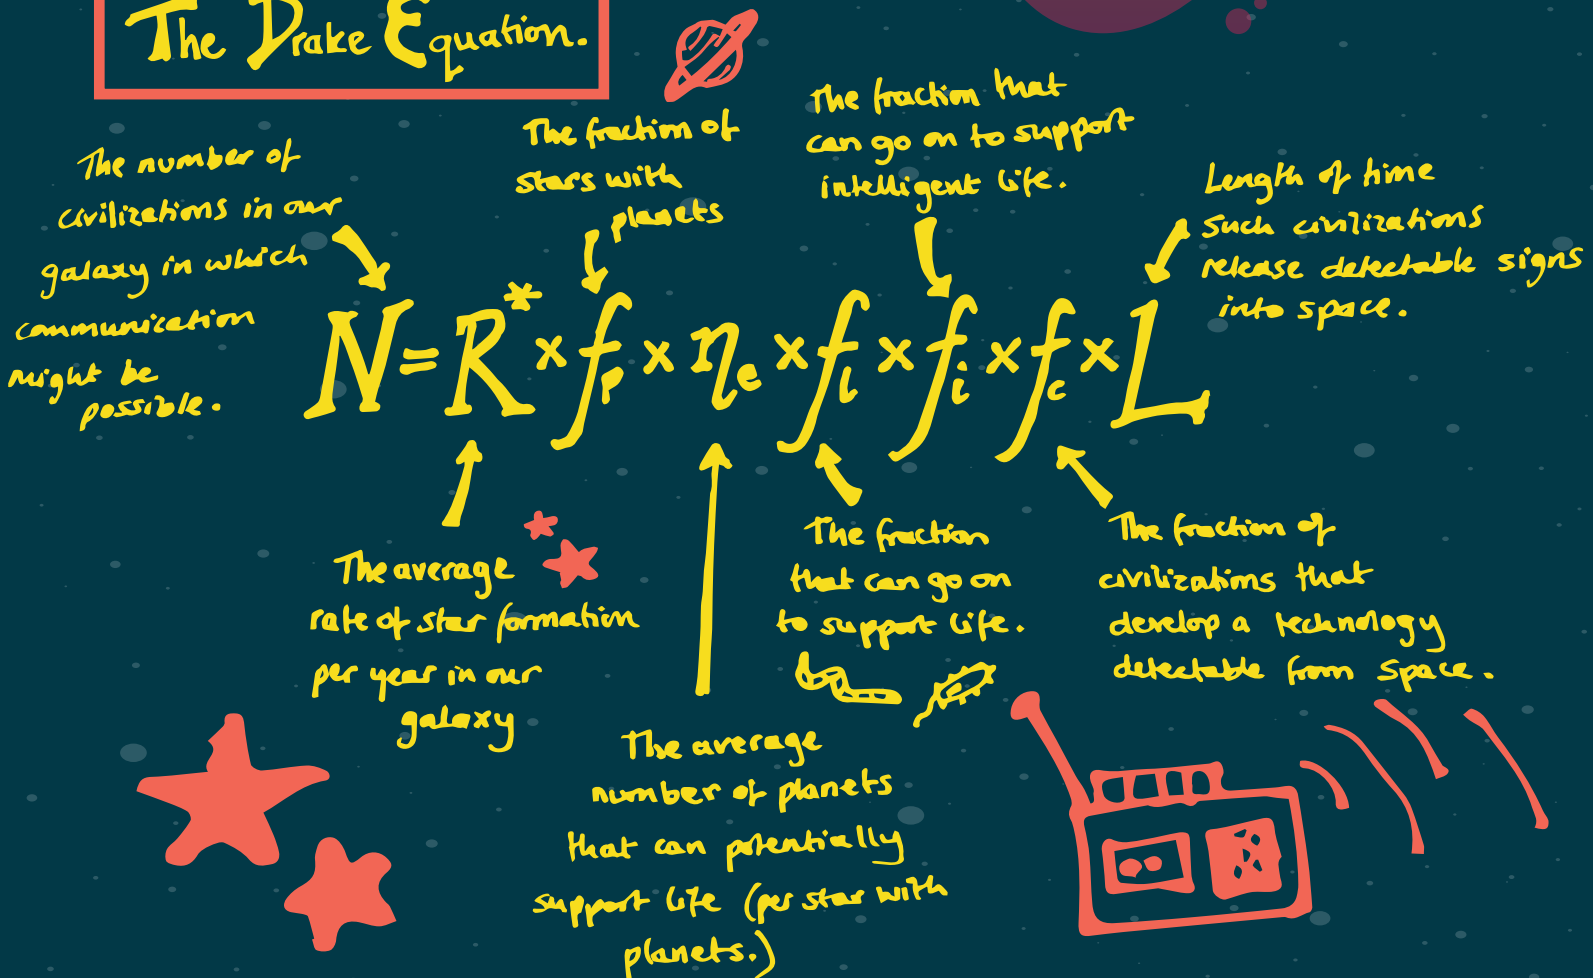 The Drake Equation.
The number of
civilizations in our
galaxy in which
communication
might be
possible.
The fraction of
stars with
planets
The fraction that
can go on to support
intelligent life.
Length of time
such civilizations
release detectable signs
into space.
N=R*×fp×ηe×fl×fi×fc×L
The average
rate of star formation
per year in our
galaxy
The average
number of planets
that can potentially
support life (per star with
planets.)
The fraction
that can go on
to support life.
The fraction of
civilizations that
develop a technology
detectable from space.